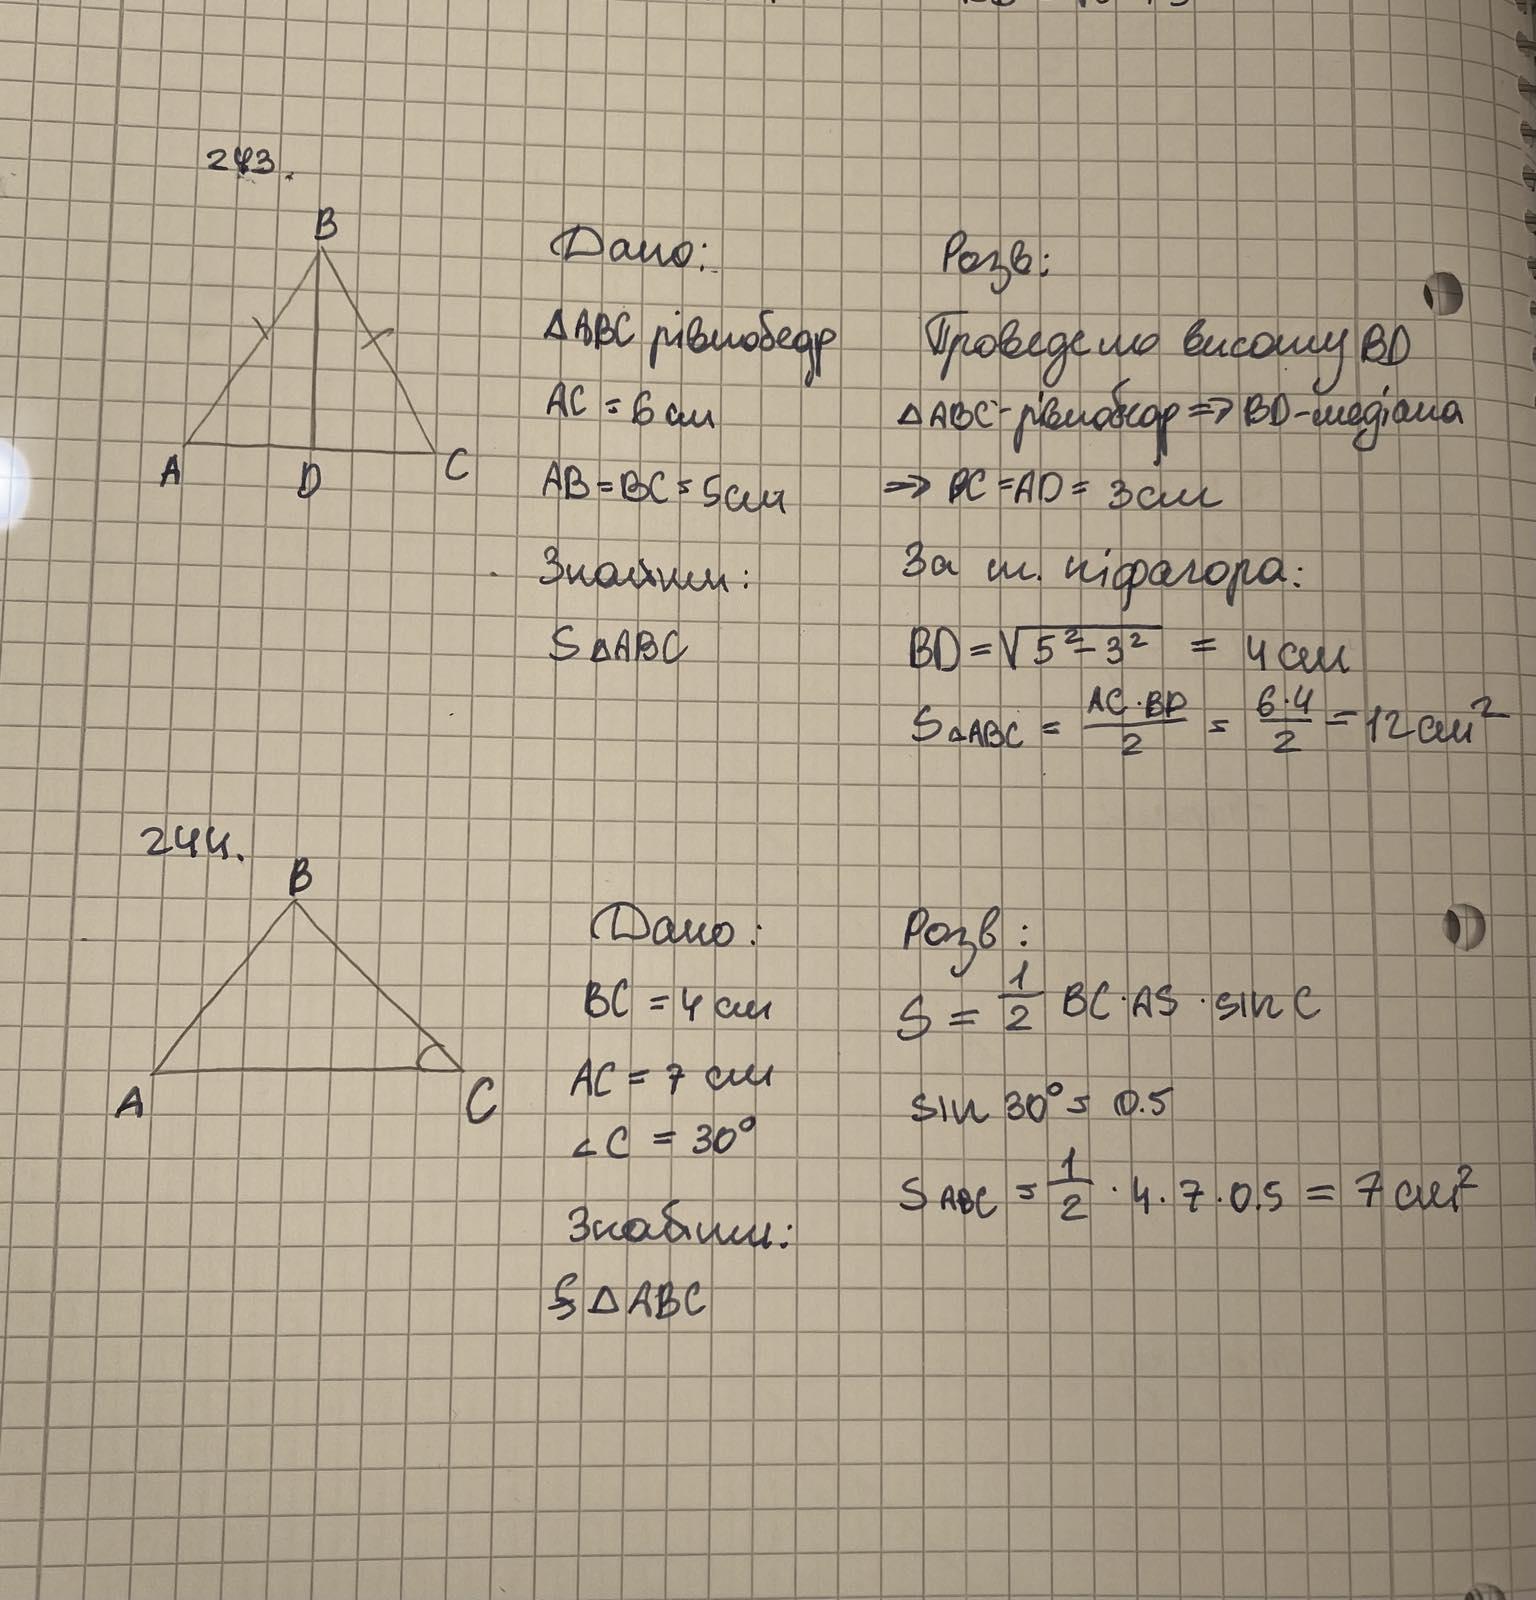 243.
B
A D C
Дано:
ΔABC рівнобедр
AC = 6 см
AB = BC = 5см
Знайти:
SΔABC
Розв:
Проведемо висоту BD
ΔABC - рівнобедр => BD - медіана
=> DC = AD = 3 см
За т. піфагора:
BD = √5² - 3² = 4 см
SΔABC = AC · BD / 2 = 6 · 4 / 2 = 12 см²
244.
B
A C
Дано:
BC = 4 см
AC = 7 см
∠C = 30°
Знайти:
SΔABC
Розв:
S = 1/2 BC · AS · sin C
sin 30° = 0.5
S ABC = 1/2 · 4 · 7 · 0.5 = 7 см²